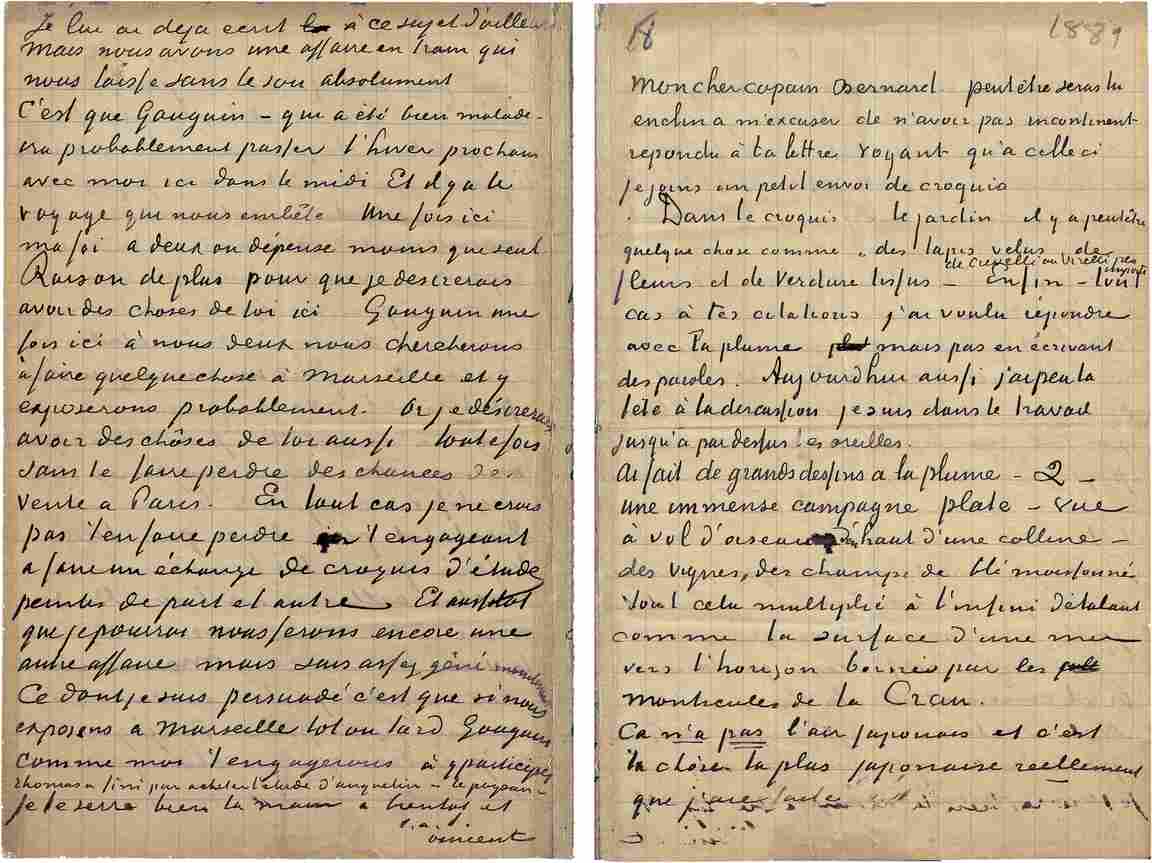 Je lui ai déja écrit à ce sujet d'ailleurs
Mais nous avons une affaire en train qui
nous laisse sans le sou absolument
C'est que Gauguin – qui a été bien malade –
ira probablement passer l'hiver prochain
avec moi ici dans le midi Et il y a le
voyage qui nous embête Une fois ici
ma foi à deux on dépense moins que seul
Raison de plus pour que je desirerais
avoir des choses de toi ici Gauguin une
fois ici à nous deux nous chercherons
à faire quelque chose à Marseille et y
exposerons probablement. Or je désirerais
avoir des chôses de toi aussi toutefois
sans te faire perdre des chances de
vente a Paris. En tout cas je ne crois
pas t'en faire perdre t'engageant
a faire un échange de croquis d'études
peintes de part et autre Et aussitot
que je pourrai nous ferons encore une
autre affaire mais suis assez gêné
Ce dont je suis persuadé c'est que si nous
exposons a Marseille tot ou tard Gauguin
comme moi t'engagerons à y participer
Thomas a fini par acheter l'étude d'anquetin – le paysan –
Je te serre bien la main a bientot et
t.à.
Vincent
18
188
Mon cher copain Bernard. peutêtre seras tu
enclin a m'excuser de n'avoir pas incontinent
repondu à ta lettre voyant qu'a celle ci
je joins un petit envoi de croquis
Dans le croquis le jardin il y a peutêtre
quelque chose comme „des tapis velus de
de Crivelli ou Virelli peu importe
fleurs et de verdure tissus – Enfin – tout
cas à tes citations j'ai voulu répondre
avec la plume mais pas en écrivant
des paroles. Aujourdhui aussi j'ai peu la
tête à la discussion je suis dans le travail
jusqu'a par dessus les oreilles.
Ai fait de grands dessins a la plume – 2 –
une immense campagne plate – vue
à vol d'oiseau Du haut d'une colline –
des vignes, des champs de blé moissonné
Tout cela multiplié à l'infini détalant
comme la surface d'une mer
vers l'horizon bornée par les
monticules de la Crau.
Ca n'a pas l'air japonais et c'est
la chose la plus japonaise reellement
que j'aie faite